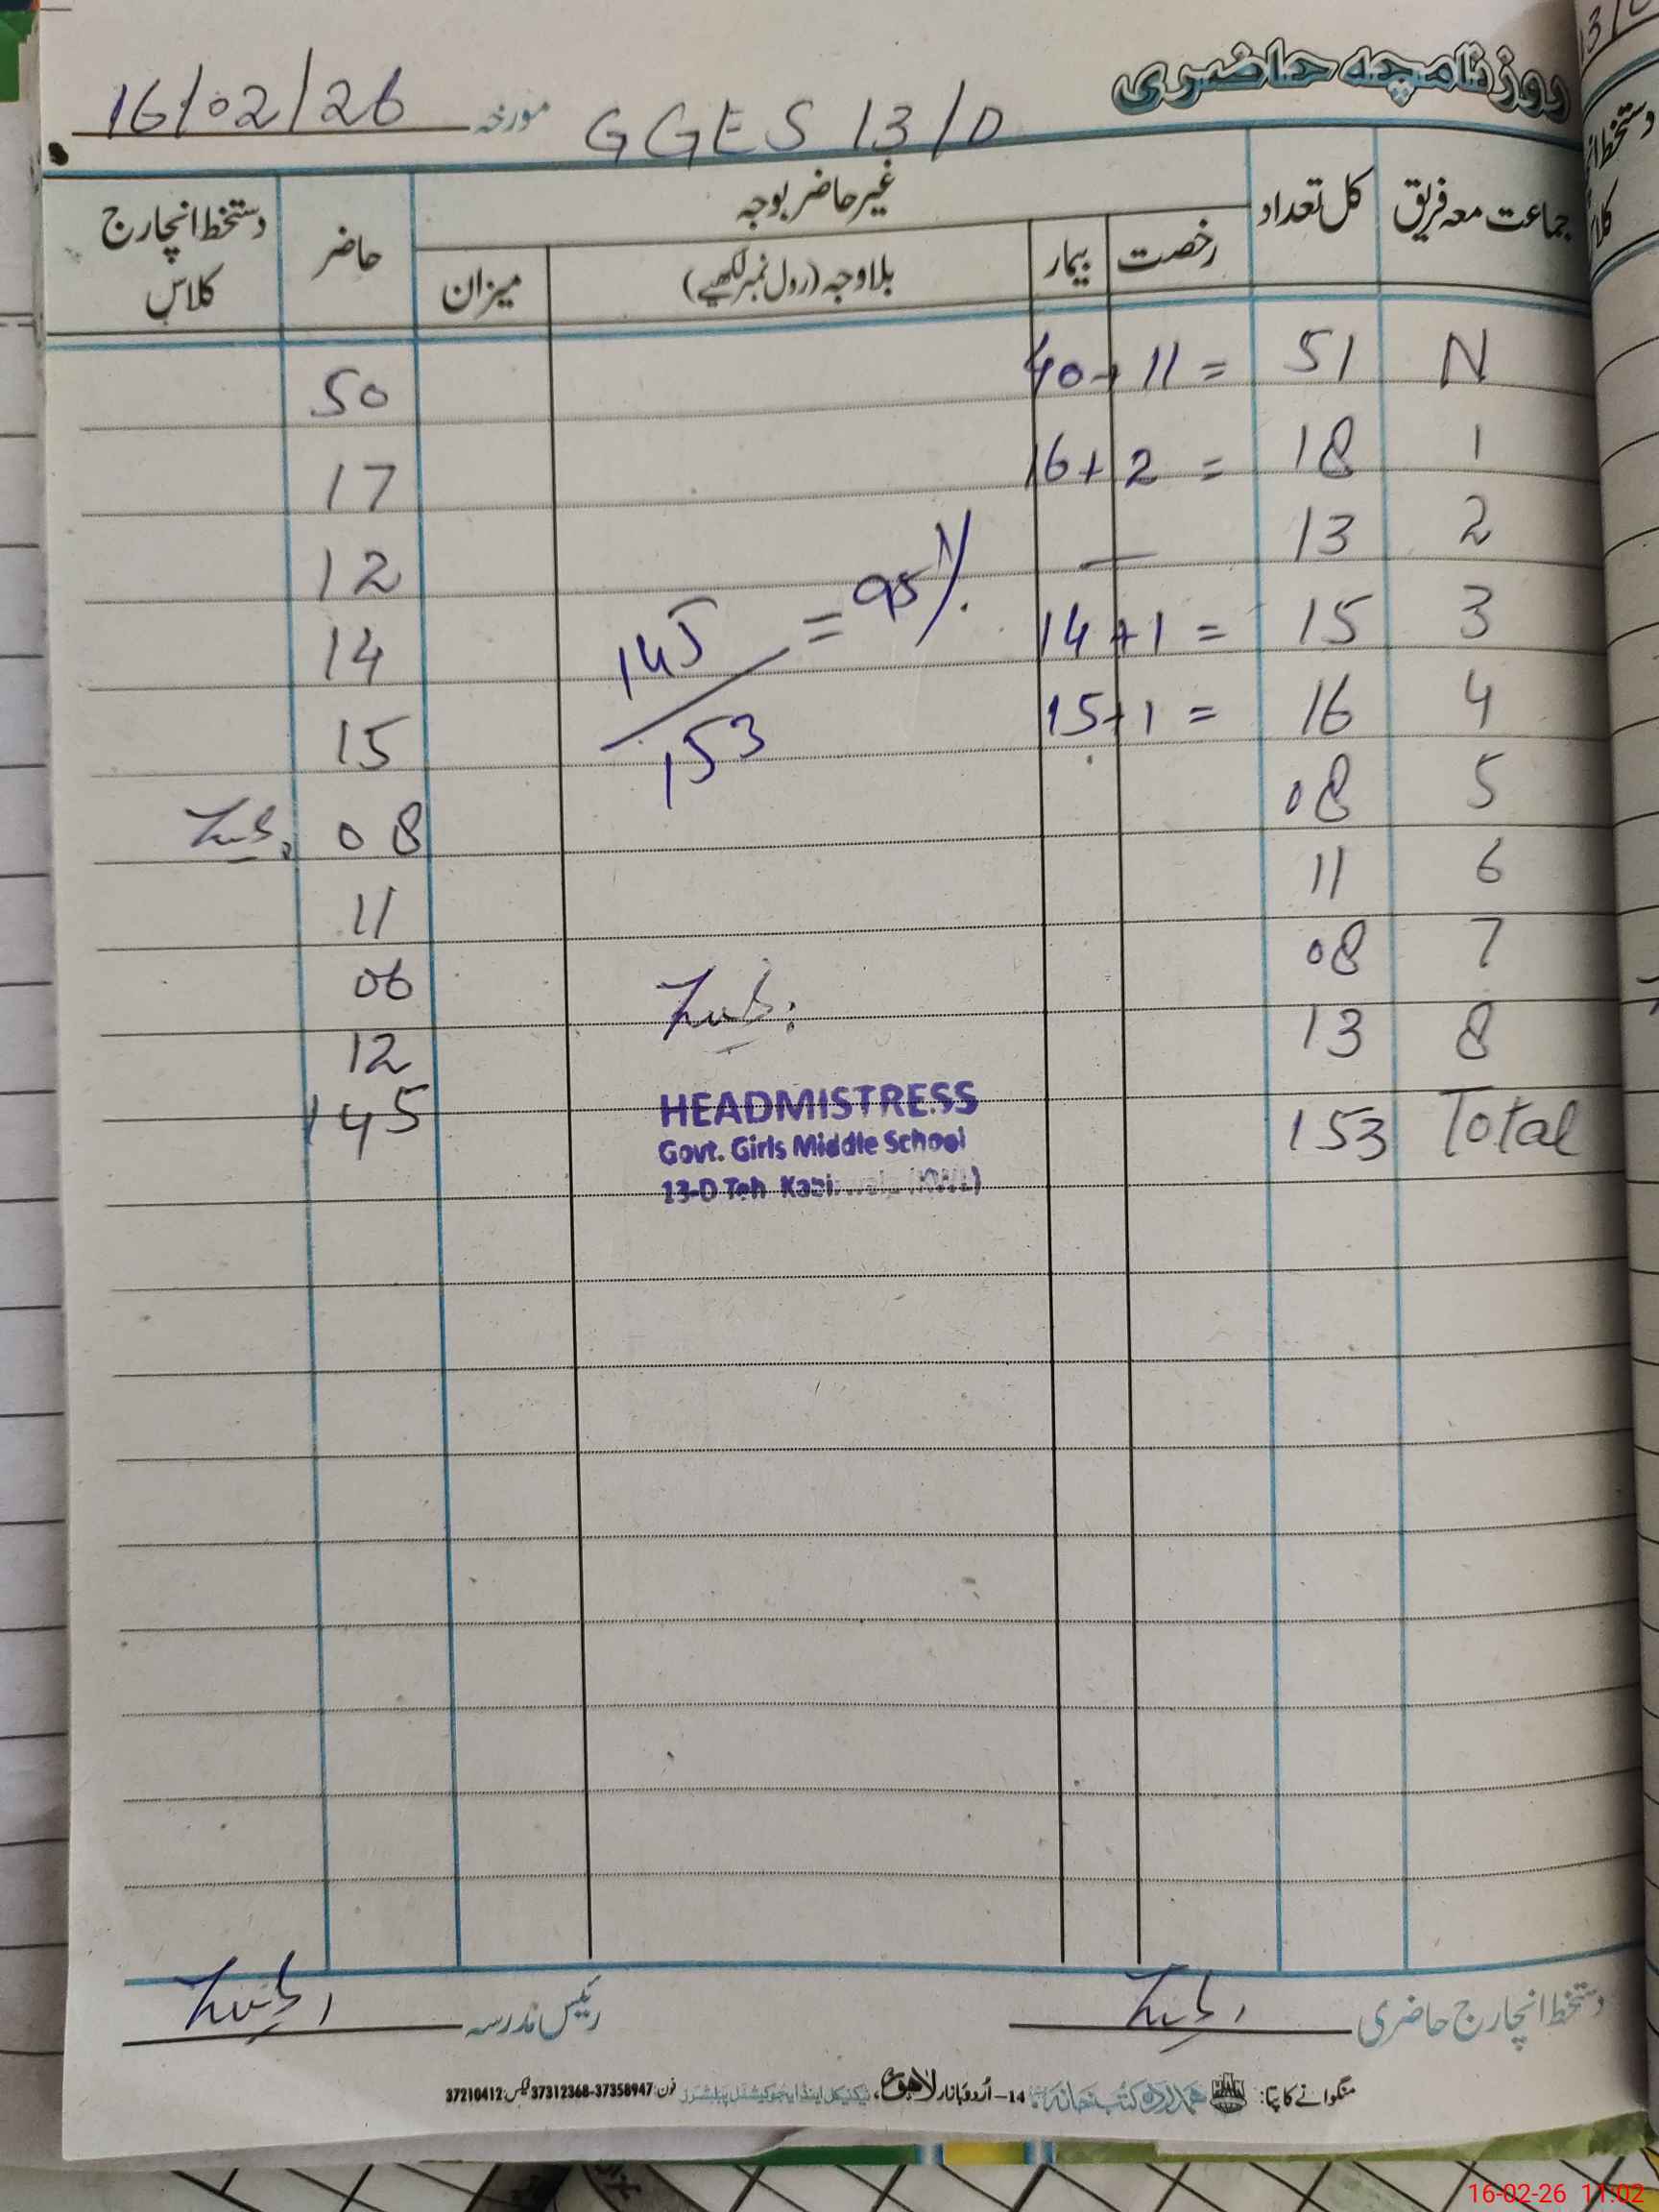 روزنامچہ حاضری
GGES 13/D مورخہ 16/02/26
جماعت معہ فریق کل تعداد غیر حاضر بوجہ حاضر دستخط انچارج کلاس
رخصت بیمار بلاوجہ (رول نمبر لکھیے) میزان
N 51 40+11= 50
1 18 16+2= 17
2 13 — 12
3 15 14+1= 14
4 16 15+1= 15
145/153 = 95%
5 08 08
6 11 11
7 08 06
8 13 12
Total 153 145
HEADMISTRESS
Govt. Girls Middle School
13-D Teh Kabirwala (KWL)
دستخط انچارج حاضری رئیس مدرسہ
منگوانے کا پتا: ہمدرد کتب خانہ 14-اُردو بازار لاہور، ٹیکنیکل اینڈ ایجوکیشنل پبلشرز فون: 37358947-37312368 فیکس: 37210412
16-02-26 11:02